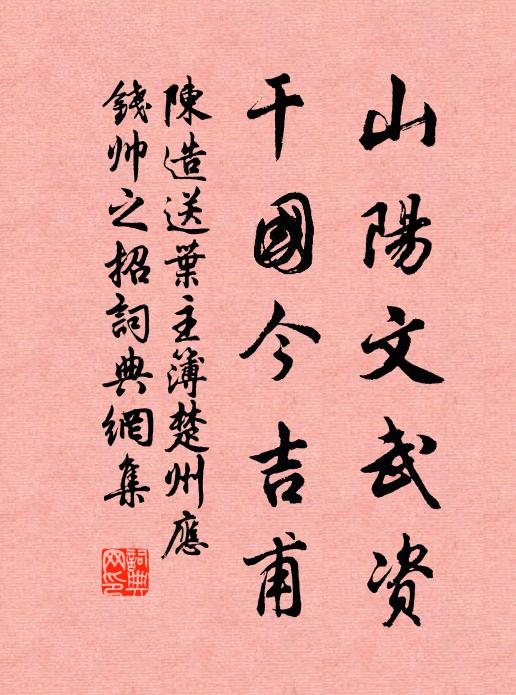 山陽文武资
干國今吉甫
陳造送葉主簿楚州應
錢帅之招詞典網集
詞典网印